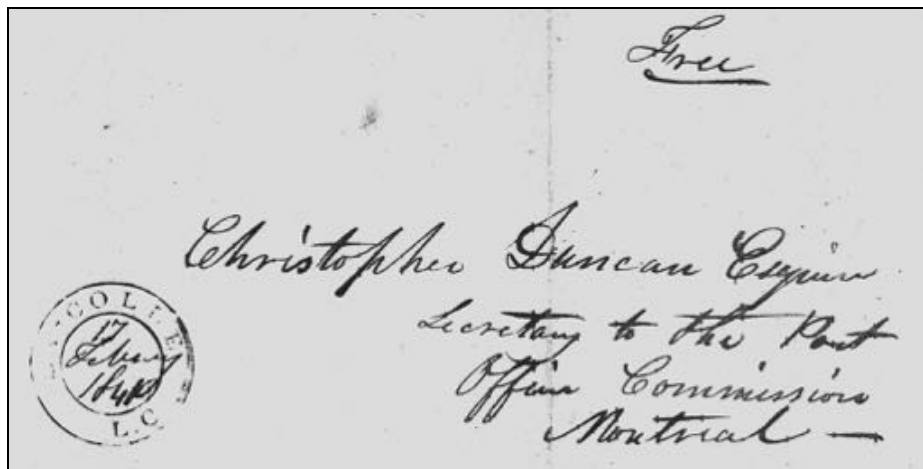 Free
Christopher Duncan Esquire
Secretary to the Post
Office Commission
Montreal —
COLLE
17
L.C